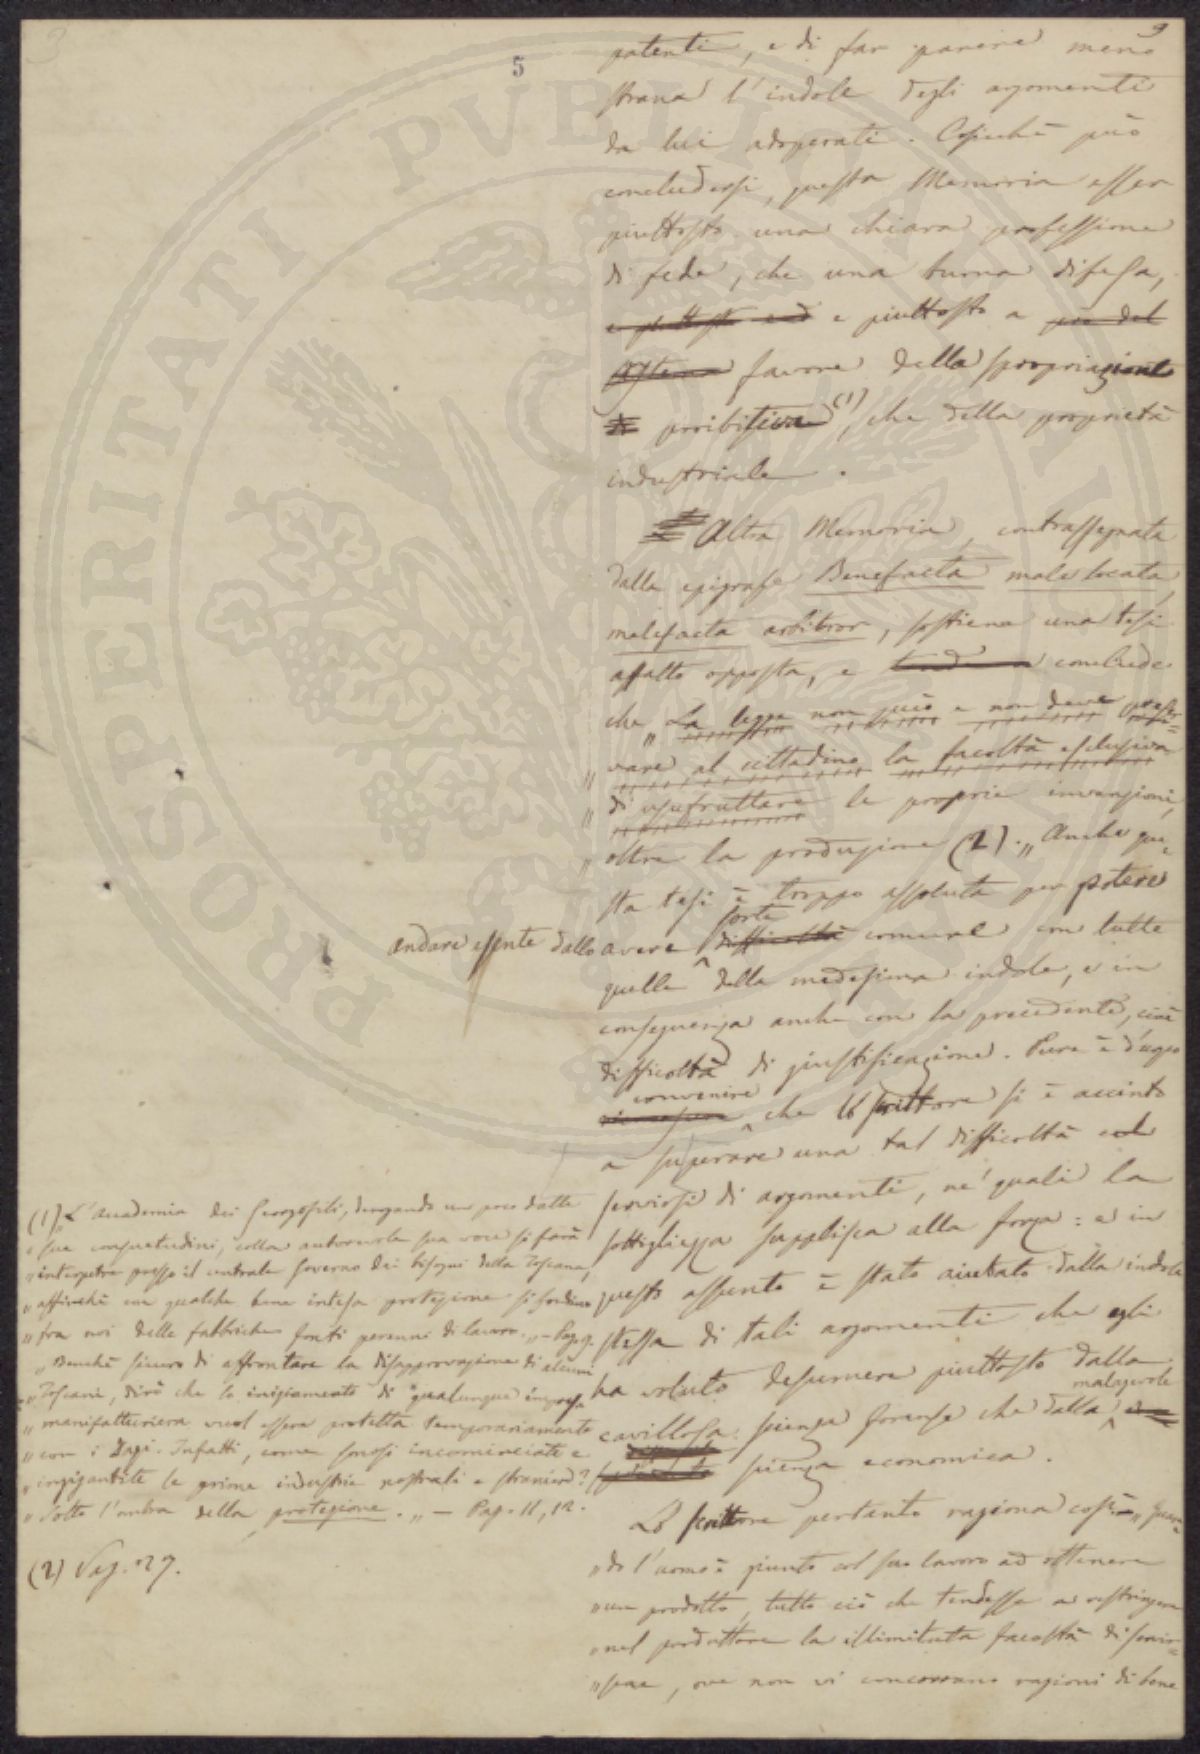 3
5
9
patenti, e di far parere meno
strana l'indole degli argomenti
da lui adoperati. Cosicchè può
concludersi, questa Memoria esser
piuttosto una chiara professione
di fede, che una buona difesa,
e piuttosto e piuttosto a pro del
sistema favore della spropriazione
proibitiva (1), che della proprietà
industriale.
Altra Memoria, contrassegnata
dalla epigrafe Benefacta male locata
malefacta arbitror, sostiene una tesi
affatto opposta, e conclude
che „ La legge non può e non deve preser=
„ vare al cittadino la facoltà esclusiva
„ di usufruttare le proprie invenzioni,
„ oltre la produzione (2). „ Anche que=
sta tesi è troppo assoluta per potere
andare esente dallo avere sorte difficoltà comune con tutte
quelle della medesima indole, e in
conseguenza anche con la precedente, cioè
difficoltà di giustificazione. Pure è d'uopo
convenire che lo scrittore si è accinto
a superare una tal difficoltà col
servirsi di argomenti, ne' quali la
sottigliezza supplisca alla forza: e in
questo assunto è stato aiutato dalla indole
stessa di tali argomenti che egli
ha voluto desumere piuttosto dalla
cavillosa scienza forense che dalla malagevole
scienza economica.
Lo scrittore pertanto ragiona così = „ Quan=
„ do l'uomo è giunto col suo lavoro ad ottenere
„ un prodotto, tutto ciò che tendesse a restringere
„ nel produttore la illimitata facoltà di
„ ove non vi concorrano ragioni di bene
(1) „ L'Accademia dei Georgofili, derogando un poco dalle
„ sue consuetudini, colla autorevole sua voce si farà
„ interpetre presso il centrale Governo dei bisogni della Toscana,
„ affinchè con qualche bene intesa protezione si fondino
„ fra noi delle fabbriche fonti perenni di lavoro. „ — Pag. 9.
„ Benchè sicuro di affrontare la disapprovazione di alcuni
„ Toscani, dirò che lo iniziamento di qualunque impresa
„ manifatturiera vuol essere protetta temporariamente
„ con i Dazi. Infatti, come sonosi incominciate e
„ ingigantite le prime industrie nostrali e straniere?
„ Sotto l'ombra della protezione. „ — Pag. 11, 12.
(2) Pag. 27.
PROSPERITATI PUBLICAE